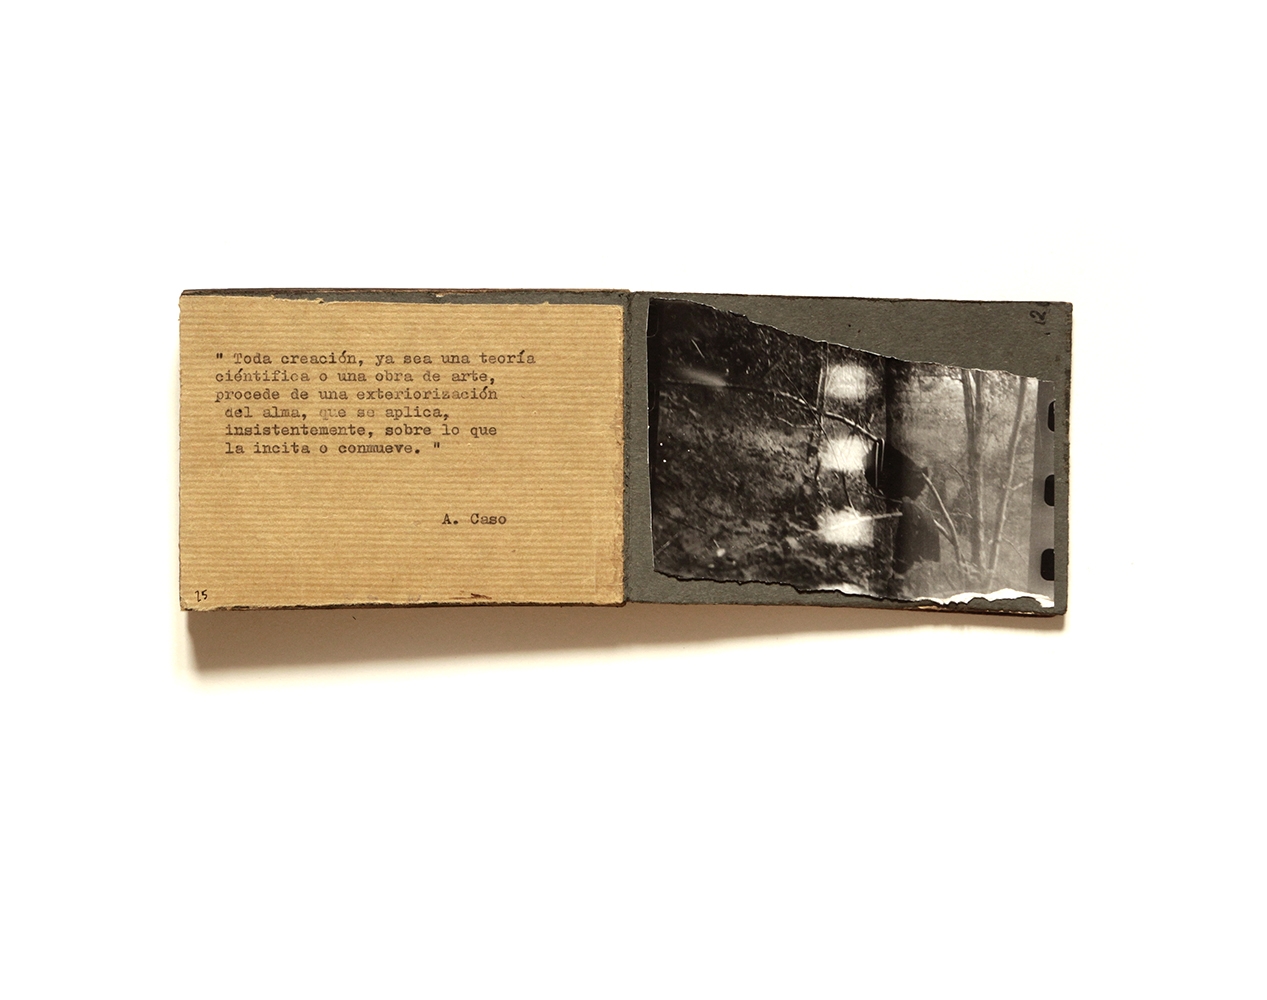 " Toda creación, ya sea una teoría
ciéntifica o una obra de arte,
procede de una exteriorización
del alma, que se aplica,
insistentemente, sobre lo que
la incita o conmueve. "
A. Caso
25